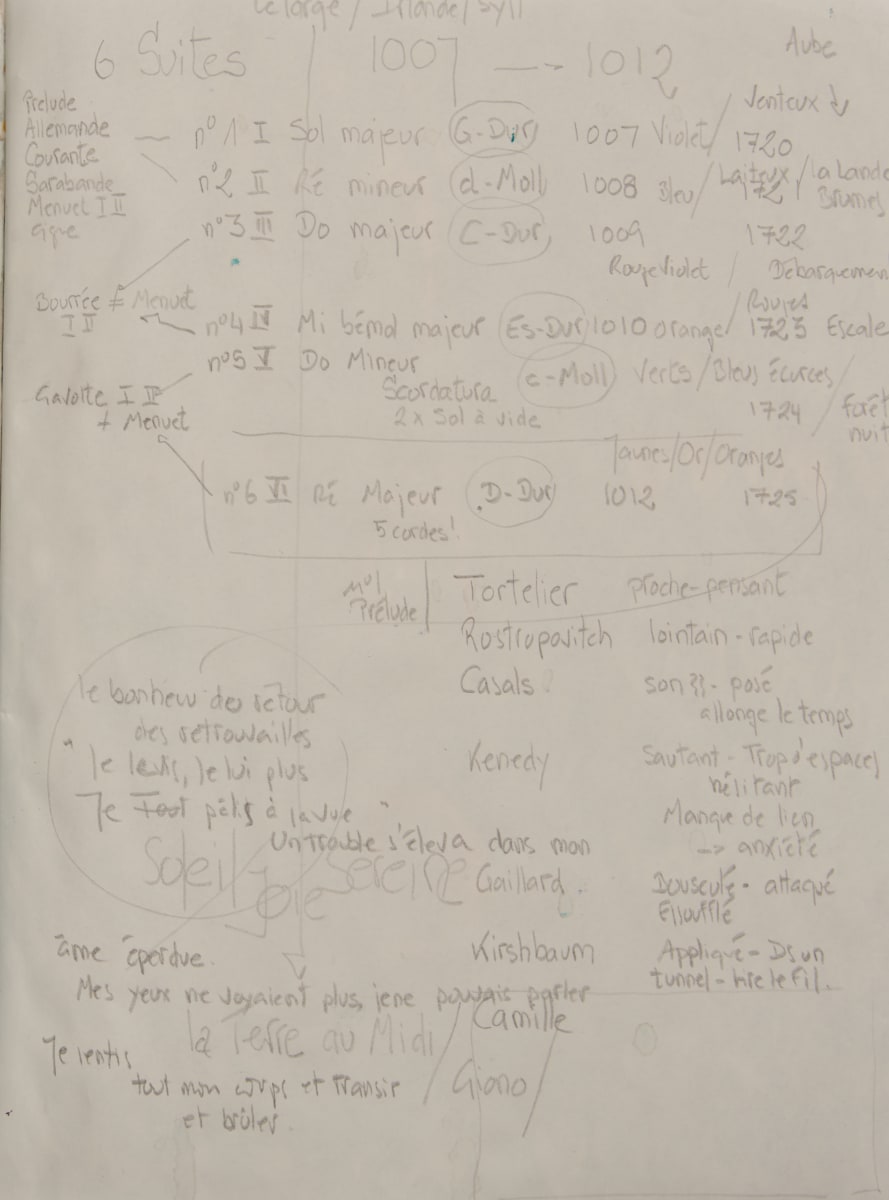 Le large / Irlande / Syll
6 Suites / 1007 --- 1012
Aube
Prélude
Allemande
Courante
Sarabande
Menuet I II
Gigue
Venteux
n°1 I Sol majeur G-Dur 1007 Violet / 1720
n°2 II Ré mineur d-Moll 1008 Bleu / Laiteux / la Lande
172
Brumes
n°3 III Do majeur C-Dur 1009 1722
Rouge Violet / Débarquement
Bourrée ≠ Menuet
I II
Rouges
n°4 IV Mi bémol majeur Es-Dur 1010 orange / 1723 Escale
n°5 V Do Mineur c-Moll Verts / Bleus Écorces /
Scordatura
2 x Sol à vide
1724 / Forêt
nuit
Gavotte I II
≠ Menuet
Jaunes/Or/Oranges
n°6 VI Ré Majeur D-Dur 1012 1725
5 cordes!
n°1
Prélude
Tortelier proche-pensant
Rostropovitch lointain - rapide
Casals son ?? - posé
allonge le temps
Kenedy Sautant - Trop d'espaces
hésitant
Manque de lien
-> anxiété
Gaillard. - attaqué
Essouflé
Kirshbaum Appliqué - Ds un
tunnel - tire le fil.
le bonheur du retour
des retrouvailles
" Je le vis, je
Je pâlis à la vue "
Un trouble s'éleva dans mon
Soleil
Joie sereine
âme éperdue.
Mes yeux ne voyaient plus, je ne pouvais parler
la Terre au Midi / Camille
Giono /
Je sentis
tout mon corps et transir
et brûler.